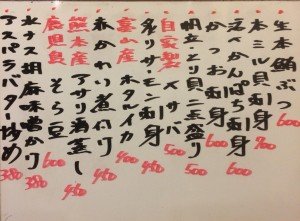 生本鮪ぶつ 600
本ミル貝刺身 700
文ぺんぱち刺身 600
かつお刺身 600
明立、とり貝二点盛り 500
自家製 〆サバ 500
炙りサーモン刺身 450
富山産 ホタルイカ 400
赤かれい煮付け 450
熊本産 アサリ酒蒸し 450
鹿児島 そら豆 600
水ナス胡麻味噌かけ 380
アスパラバター炒め 380